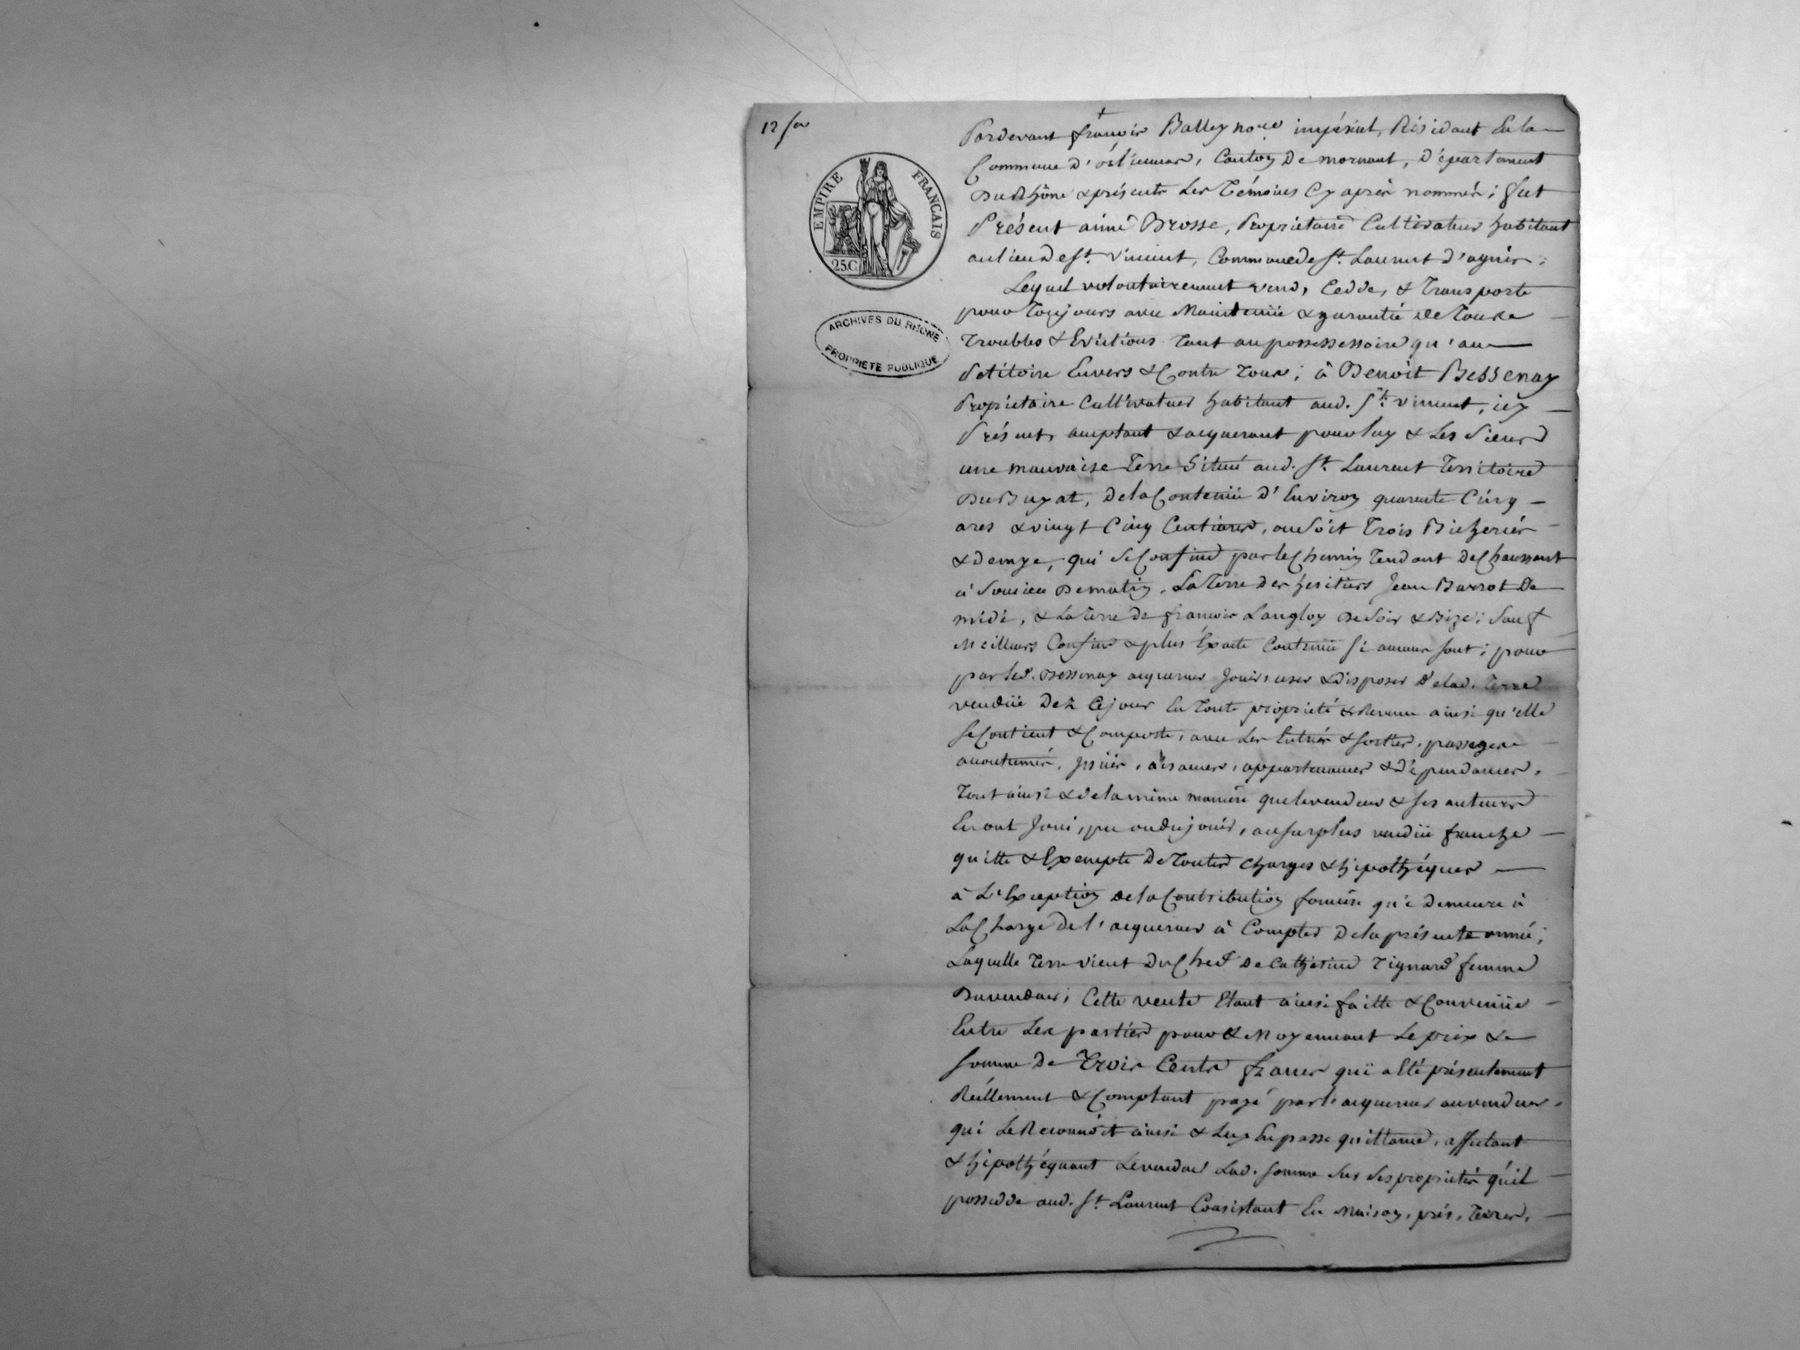 12 fév
EMPIRE FRANÇAIS
25C.
ARCHIVES DU RHÔNE
PROPRIÉTÉ PUBLIQUE
Pardevant françois Balley no.re impérial, Résidant En la
Commune d'orliennas, Canton De mornant, Département
Du Rhône & présents Les Témoins Cy après nommés ; fut
Présent aimé Brosse, Propriétaire Cultivateur habitant
au lieu De St. Vincent, Commune de St. Laurent d'agnis ;
Lequel volontairement vend, Cedde, & Transporte
pour Toujours avec Maintenüe & garantie de Tous
Troubles & Evictions Tant au possessessoire qu'au
Petitoire Envers & Contre Tous ; à Benoit Bessenay
Propriétaire Cultivateur habitant aud. St. Vincent, icy
Présent, acceptant & acquerant pour luy & Les Siens
une mauvaise Terre Située aud. St. Laurent Territoire
Du Buyat, De la Contenüe d'Environ quarante Cinq
ares & vingt Cinq Centiares, ou Soit Trois Bicherées
& Demye, qui Se Confine par le Chemin Tendant De Chaussant
à Soucieu De matin, La Terre Des heritiers Jean Barrot De
midi, & La Terre de françois Langloy De Soir & Bize ; Sauf
Meilleurs Confins & plus Exacte Contenüe Si aucuns Sont ; pour
par led. Bessenay acquereur Jouir, user & Disposer De lad. Terre
vendüe Dès Ce jour En Toute propriété & Revenu ainsi qu'elle
Se Contient & Comporte, avec Les Entrées & Sorties, passages
accoutumés, Issües, aisances, appartenances & Dépendances,
Tout ainsi & de la même manière que le vendeur & Ses auteurs
En ont Joui, pu ou du jouir, au Surplus vendüe franche
quitte & Exempte De Toutes Charges & hipothèques
à L'Exception De la Contribution foncière qui Demeure à
La Charge De l'acquereur à Compter De la présente année ;
Laquelle Terre vient Du Chef De Catherine Tignard femme
Du vendeur ; Cette vente Etant ainsi faitte & Convenüe
Entre Les parties pour & Moyennant Le prix &
Somme De Trois Cents francs qui a Eté présentement
Réellement & Comptant payé par l'acquereur au vendeur
qui Le Reconnoit ainsi & Luy En passe quittance, affectant
& hipothéquant Le vendeur Lad. Somme Sur Ses propriétés qu'il
possedde aud. St. Laurent Consistant En Maison, prés, Terres,